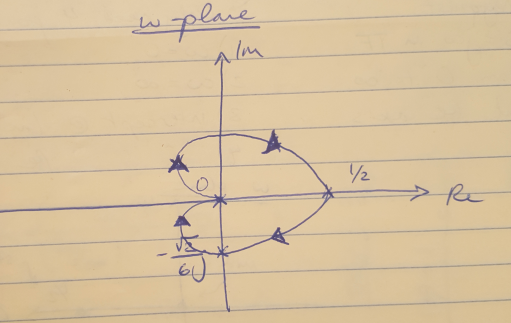 w-plane
Im
0
1/2
Re
-√2/6 j